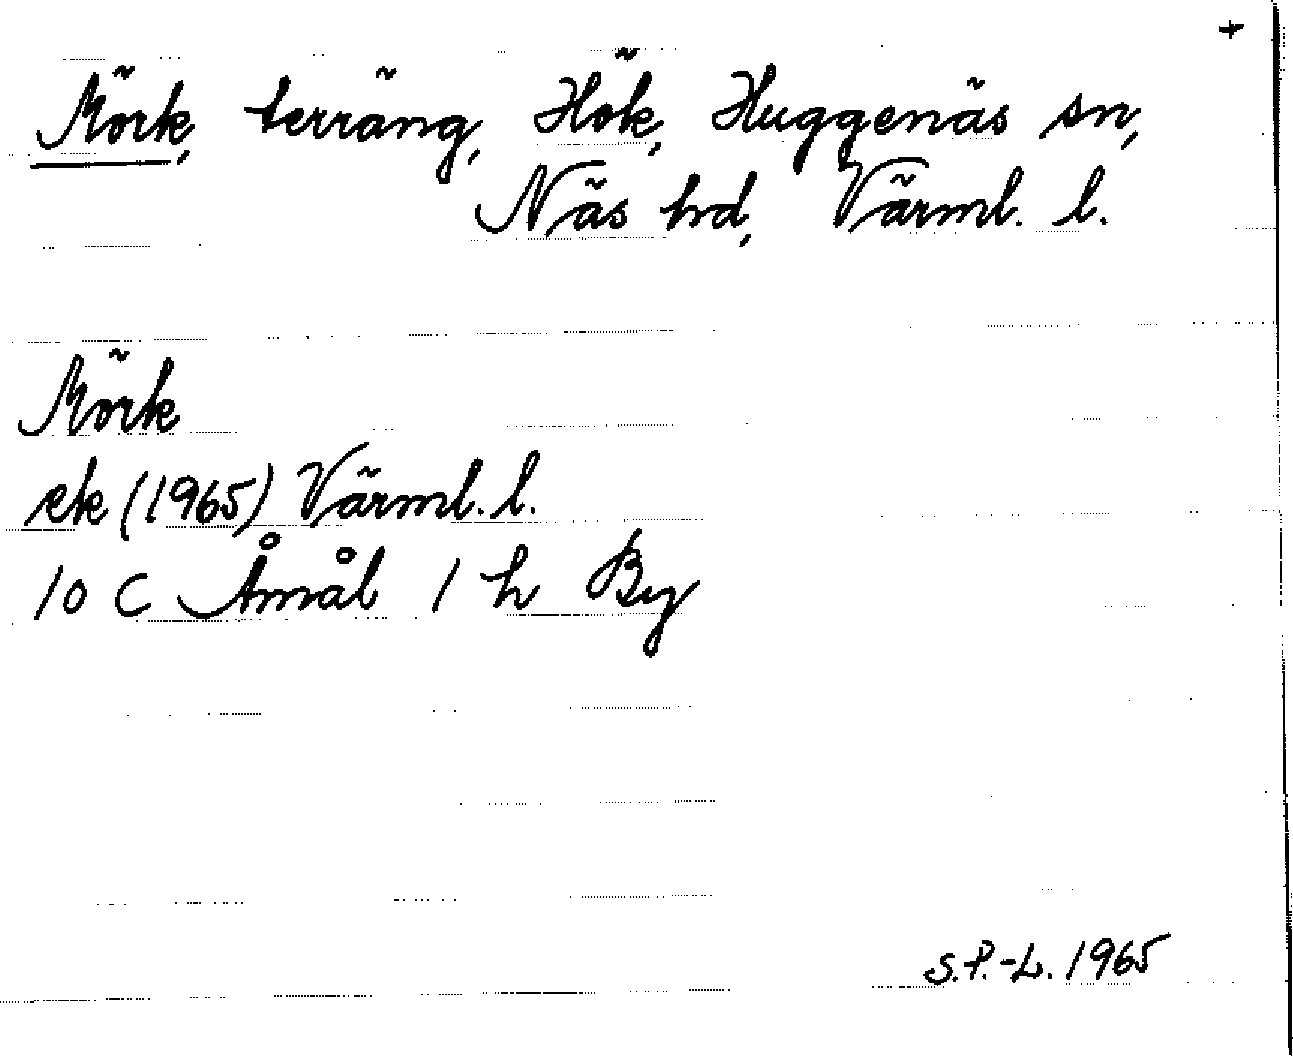 +
Mörk, terräng, Hök, Huggenäs sn,
Näs hd, Värml. l.
Mörk
ek (1965) Värml. l.
10 C Åmål 1 h By
S.P.-L. 1965